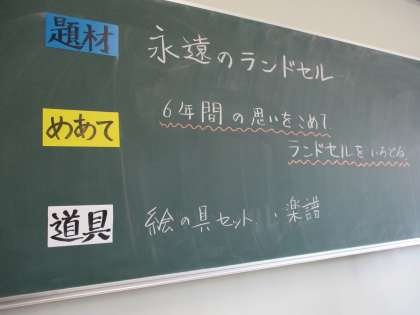 題材 永遠のランドセル
めあて 6年間の思いをこめて
ランドセルをいろどる
道具 絵の具セット、楽譜